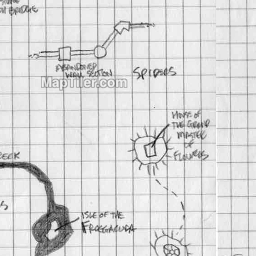 BRIDGE
ABANDONED
WALL SECTION
SPIDERS
MapTiler.com
HOUSE OF
THE GRAND
MASTER
OF
FLOWERS
ISLE OF THE
FROGGACUDA